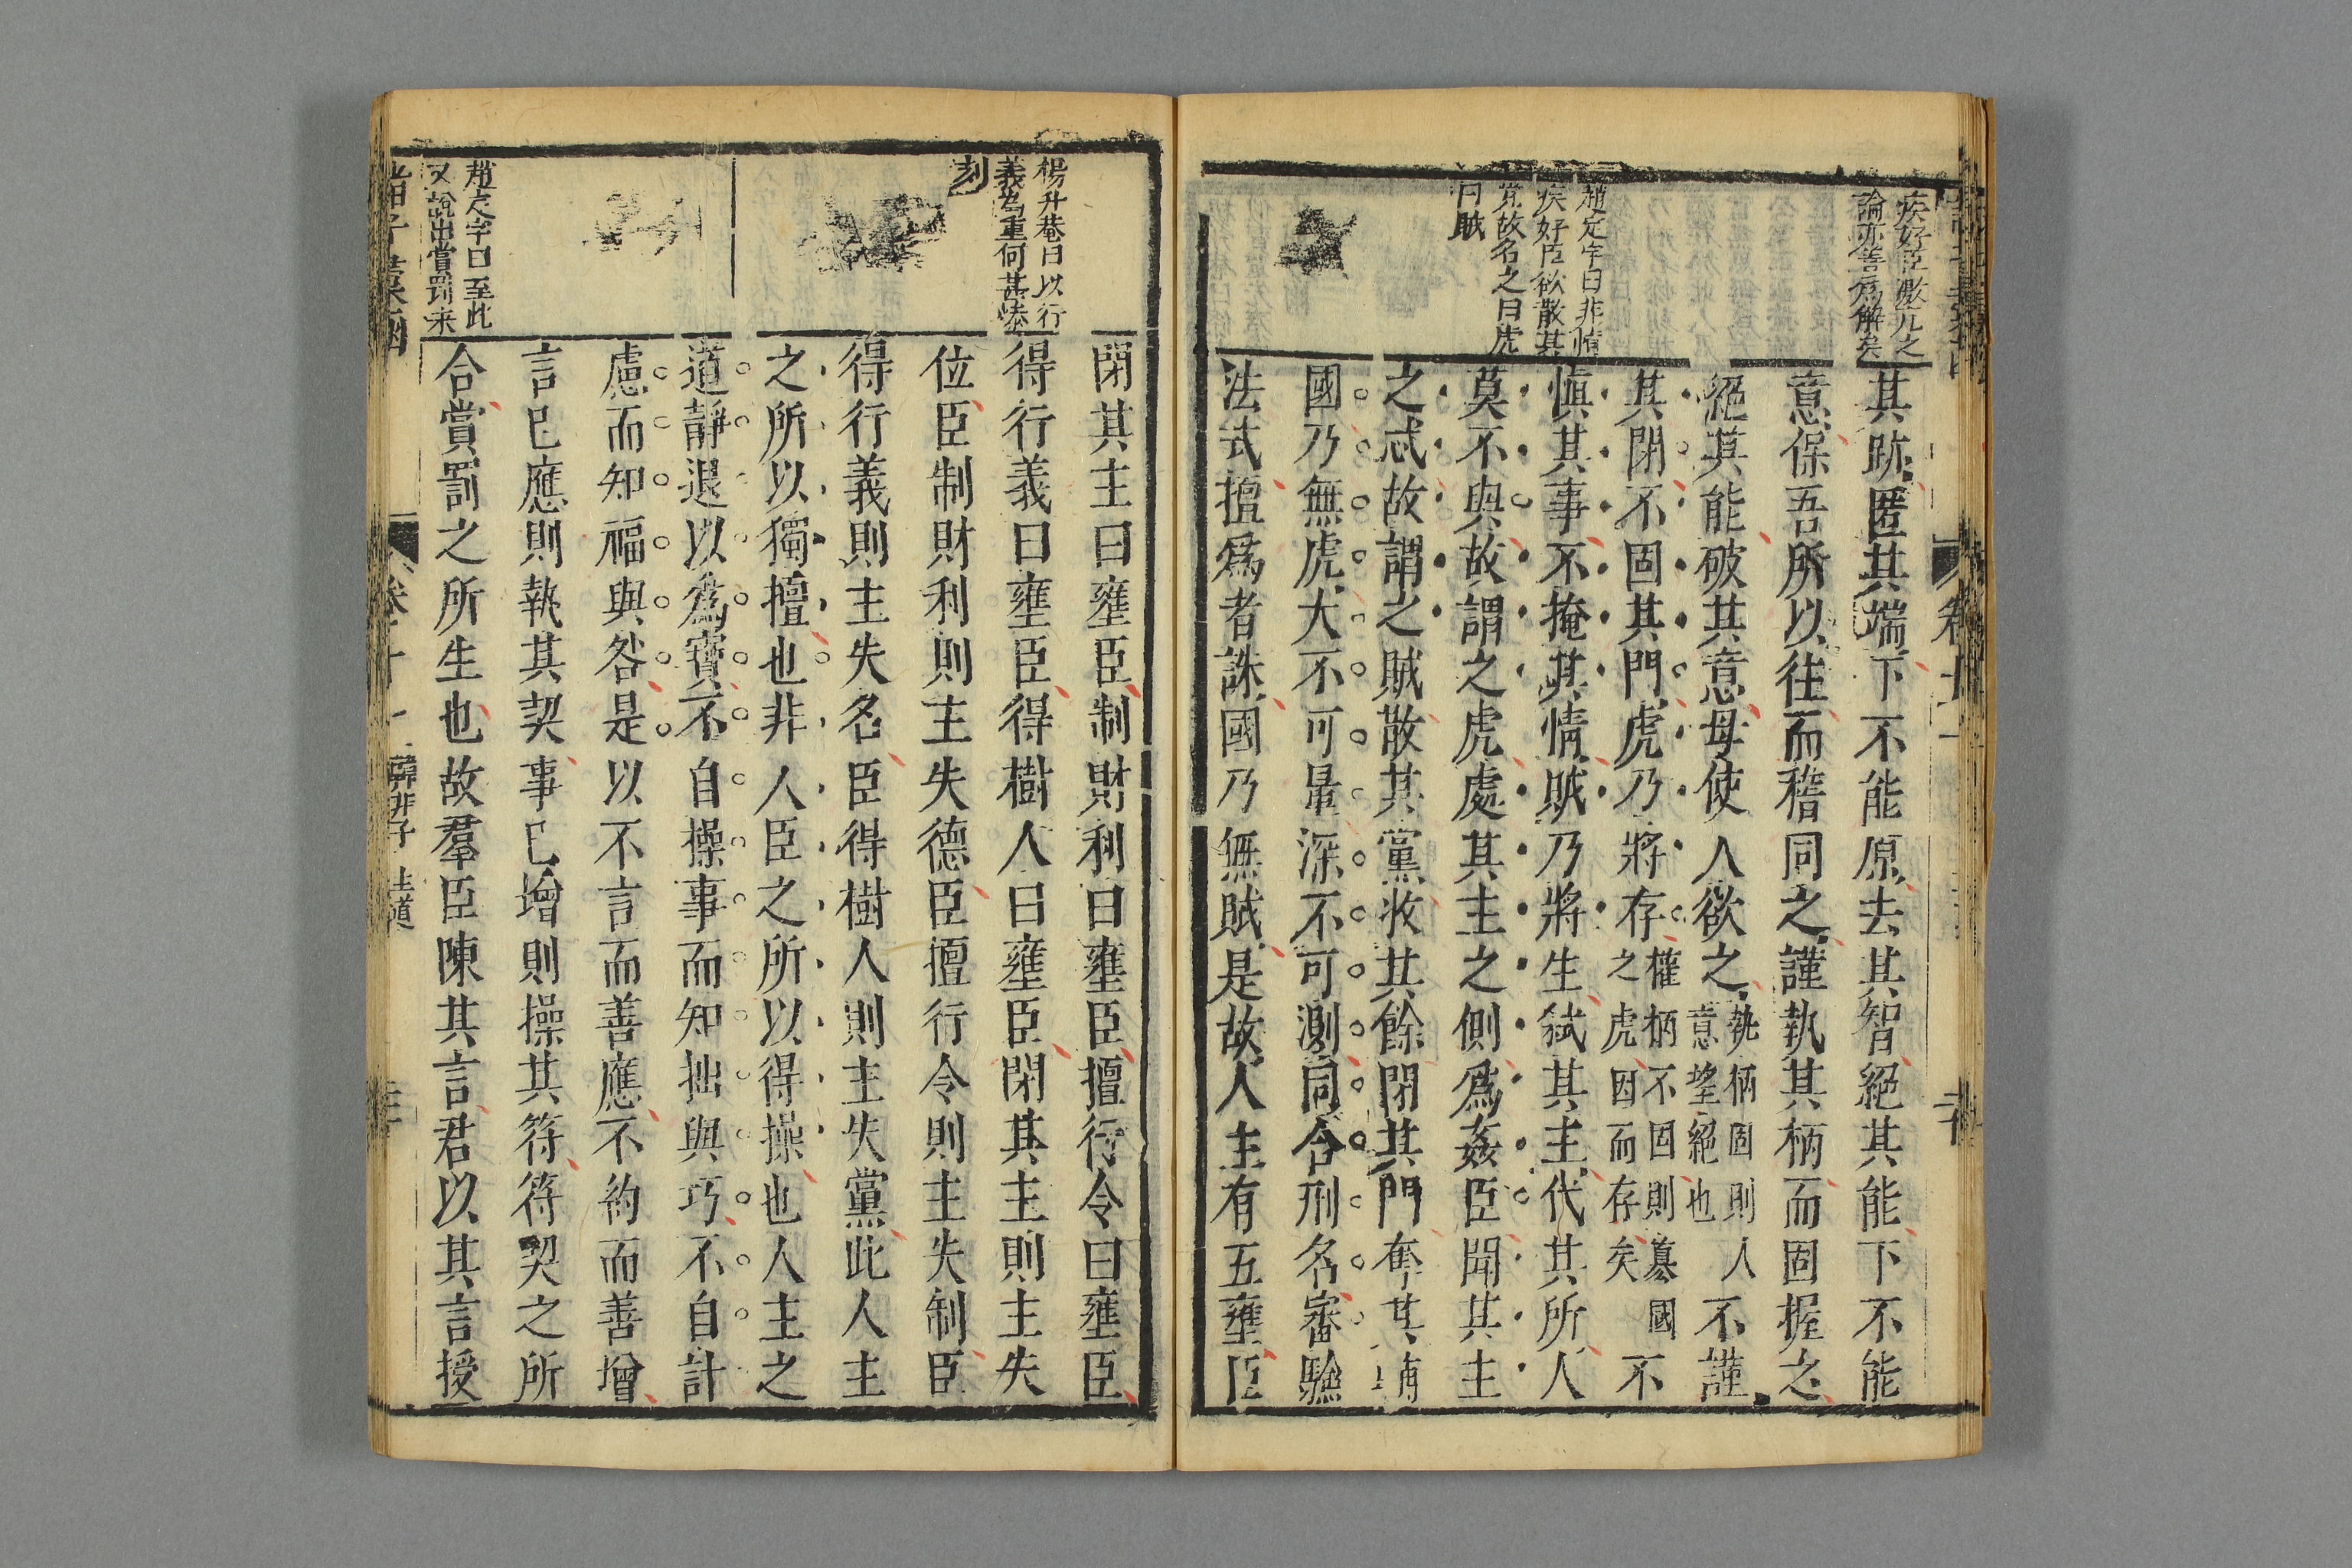 疾好臣激凡之
論亦善為解矣
其跡匿其端下不能原去其智絕其能下不能
意保吾所以往而稽同之謹執其柄而固握之
絕其能破其意毋使人欲之執柄固則人意望絕也不謹
其閉不固其門虎乃將存權柄不固則簒國之虎因而存矣不
慎其事不掩其情賊乃將生弑其主代其所人
莫不與故謂之虎處其主之側爲姦臣聞其主
之忒故謂之賊散其黨收其餘閉其門奪其輔
國乃無虎大不可量深不可測同合刑名審驗
法式擅爲者誅國乃無賊是故人主有五壅臣
趙定宇曰非情
疾好臣欲散其
党故名之曰虎
曰賊
閉其主曰壅臣制財利曰壅臣擅行令曰壅臣
得行義曰壅臣得樹人曰壅臣閉其主則主失
位臣制財利則主失德臣擅行令則主失制臣
得行義則主失名臣得樹人則主失黨此人主
之所以獨擅也非人臣之所以得操也人主之
道靜退以爲寶不自操事而知拙與巧不自計
慮而知福與咎是以不言而善應不約而善增
言已應則執其契事已增則操其符符契之所
合賞罰之所生也故羣臣陳其言君以其言授
楊升菴曰以行
義為重何甚慘
刻
趙定宇曰至此
又說出賞罰来
卷十一 韓非子 主道